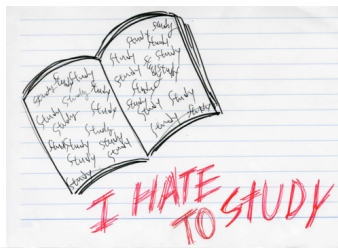 study study study
study study study
study study
study
study study
study study
study
study study
study
study study
study & study
study study
study
study study
study study
I HATE
TO STUDY